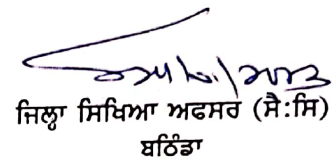 ਜਿਲ੍ਹਾ ਸਿਖਿਆ ਅਫਸਰ (ਸੈ:ਸਿ)
ਬਠਿੰਡਾ